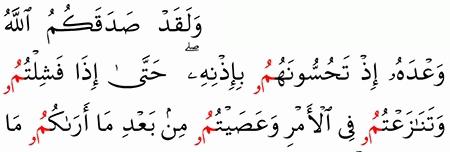 وَلَقَدْ صَدَقَكُمُ ٱللَّهُ
وَعْدَهُۥ إِذْ تَحُسُّونَهُمُۥ بِإِذْنِهِۦۖ حَتَّىٰ إِذَا فَشِلْتُمُۥ
وَتَنَٰزَعْتُمُۥ فِى ٱلْأَمْرِ وَعَصَيْتُمُۥ مِنۢ بَعْدِ مَا أَرَىٰكُمُۥ مَا